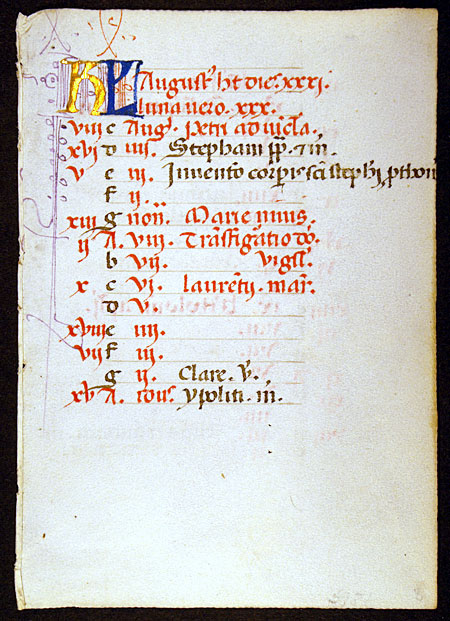 KL August ht dies xxxi.
luna vero. xxx.
viii c Aug. Petri ad vicla.
xvi d iiii. Stephani pp. & m.
v e iii. Inventio corpis sci stephi, pthom
f ii.
xiii g non. Marie nivis.
ii A. viii. Transfiguratio do.
b vii. vigl.
x c vi. laurentij. mar.
d v.
xviii e iiii.
vii f iii.
g ii. Clare. v.
xv A. idus. ypoliti. m.